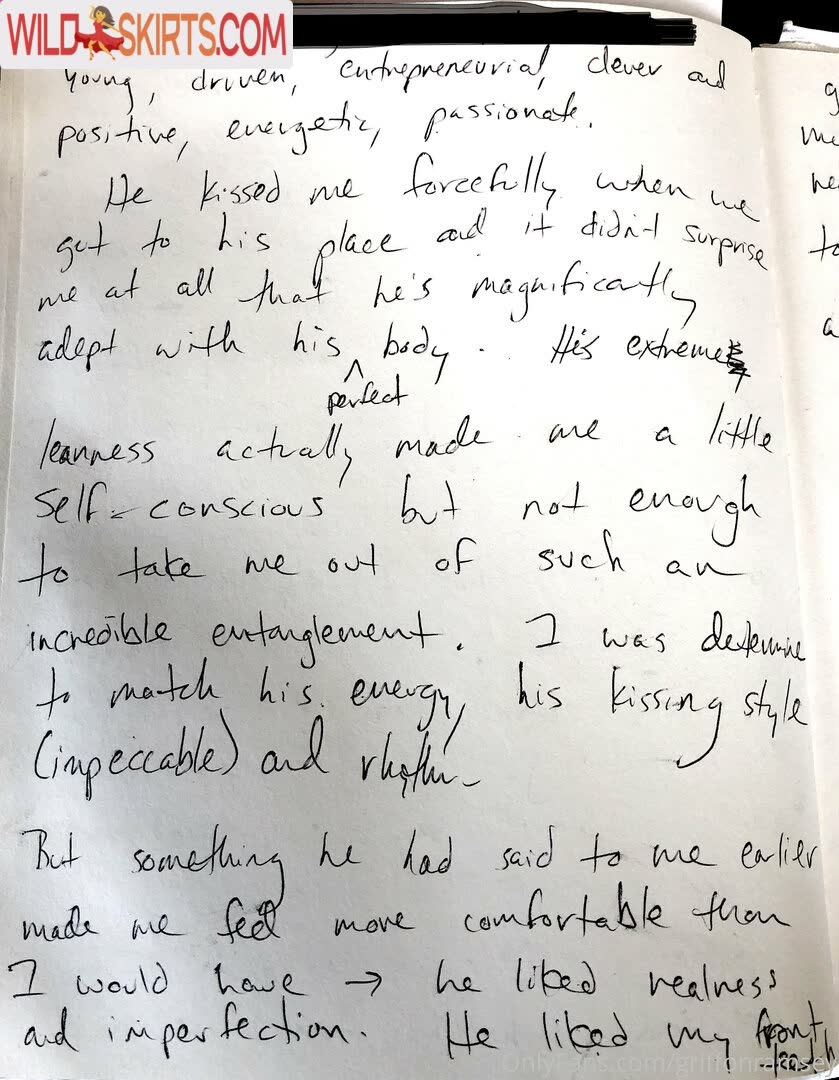 WILDSKIRTS.COM
young, driven, entrepreneurial, clever and
positive, energetic, passionate.
He kissed me forcefully when we
got to his place and it didn't surprise
me at all that he's magnificantly
adept with his ^ body. His extreme
perfect
leanness actually made me a little
self-conscious but not enough
to take me out of such an
incredible entanglement. I was determine
to match his energy, his kissing style
(impeccable) and rhythm
But something he had said to me earlier
made me feel more comfortable than
I would have → he liked realness
and imperfection. He liked my front
teeth
OnlyFans.com/griffonramsey